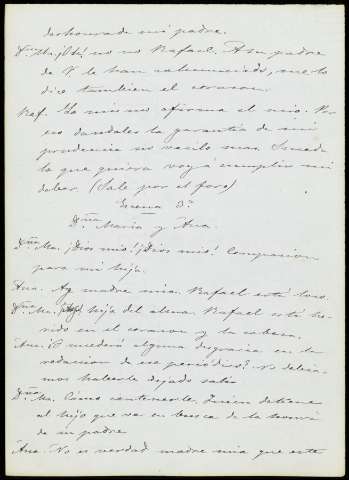 deshonra de mi padre.
Dña. Ma. ¡Oh! no no Rafael. A su padre
de V le han calumniado, me lo
dice tambien el corazon.
Raf. Lo mismo afirma el mio. Por
eso dandoles la garantia de mi
prudencia no vacilo mas. Suceda
lo que quiera voy á cumplir mi
deber. (Sale por el foro)
Escena 3ª
Dña Maria y Ana.
Dña. Ma. ¡Dios mio! ¡Dios mio! Compasion
para mi hija.
Ana. Ay madre mia. Rafael está loco.
Dña. Ma. hija del alma. Rafael está he-
rido en el corazon y la cabeza.
Ana. ¿O sucederá alguna desgracia en la
redaccion de ese periódico? No debia-
mos haberle dejado salir
Dña. Ma. Cómo contenerle. Quien detiene
al hijo que va en busca de la honra
de su padre
Ana. No es verdad madre mia que este